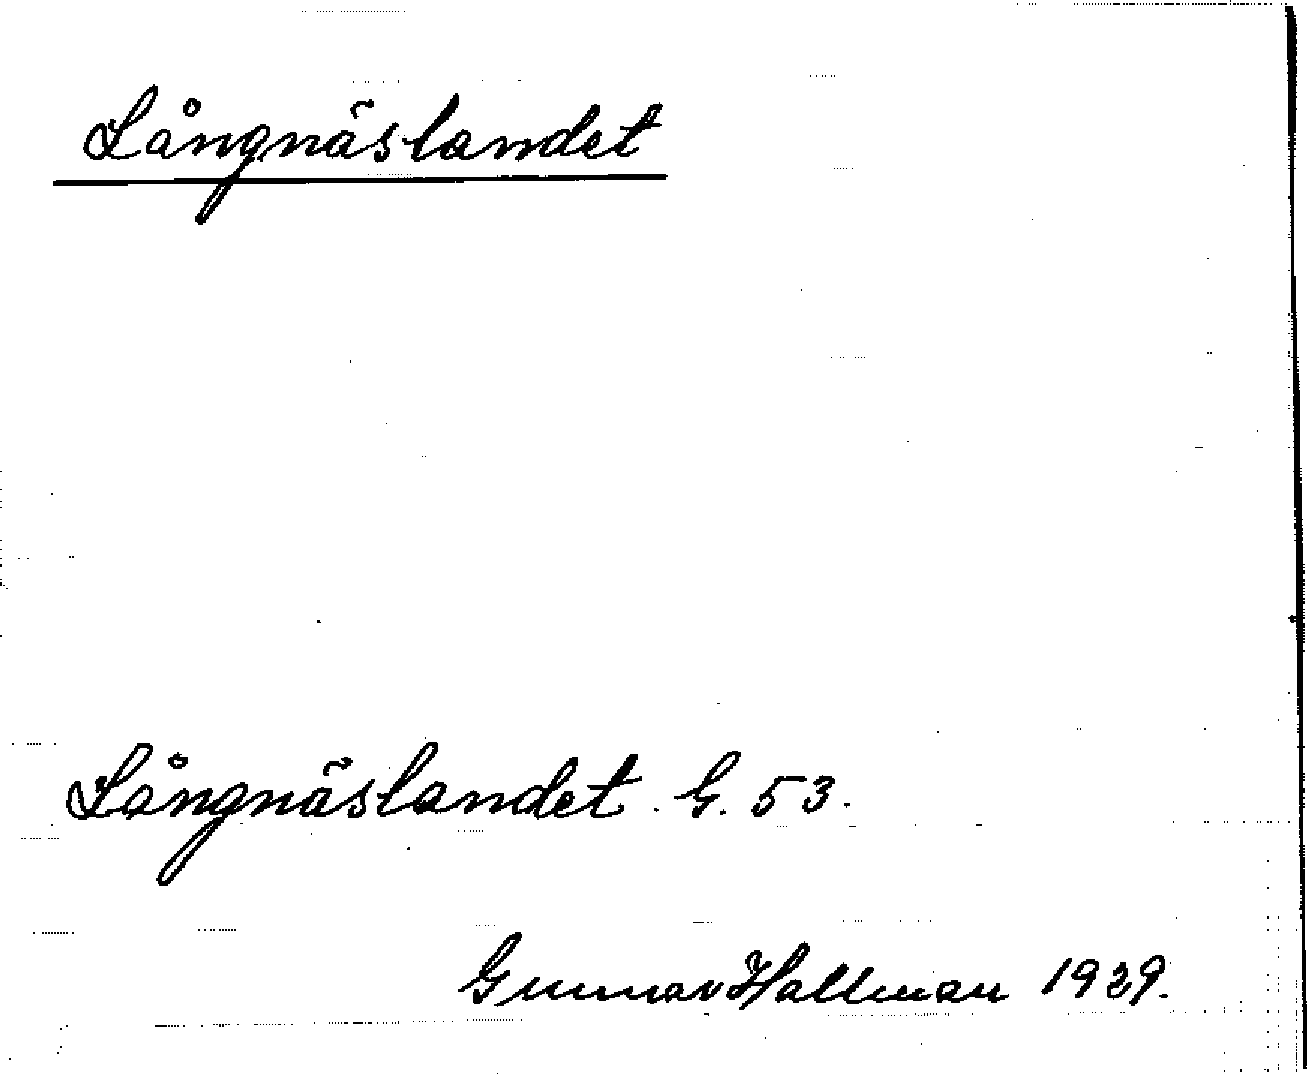 Långnäslandet
Långnäslandet G. 53.
Gunnar Hallman 1939.